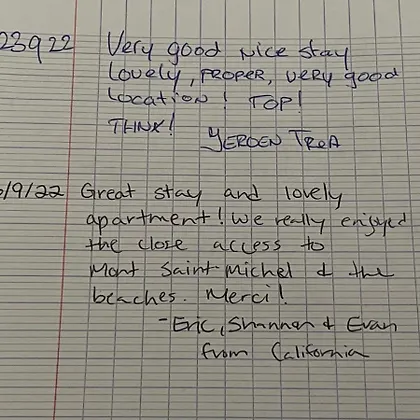 23922 Very good nice stay
Lovely, PROPER, very good
Location! TOP!
THINX!
YEROEN TREA
/9/22 Great stay and lovely
apartment! We really enjoyed
the close access to
Mont Saint-Michel & the
beaches. Merci!
- Eric, Shannan & Evan
from California